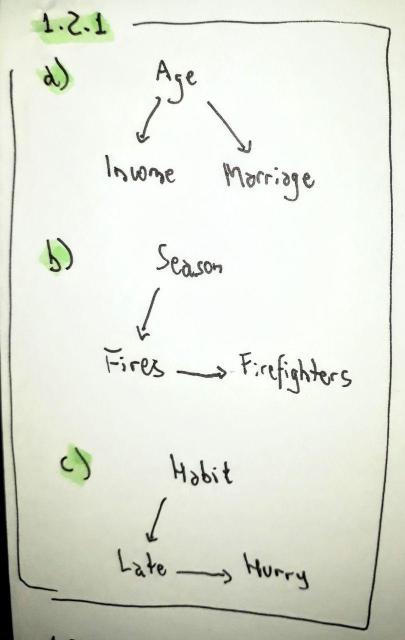 1.2.1
a) Age
Income Marriage
b) Season
Fires Firefighters
c) Habit
Late Hurry